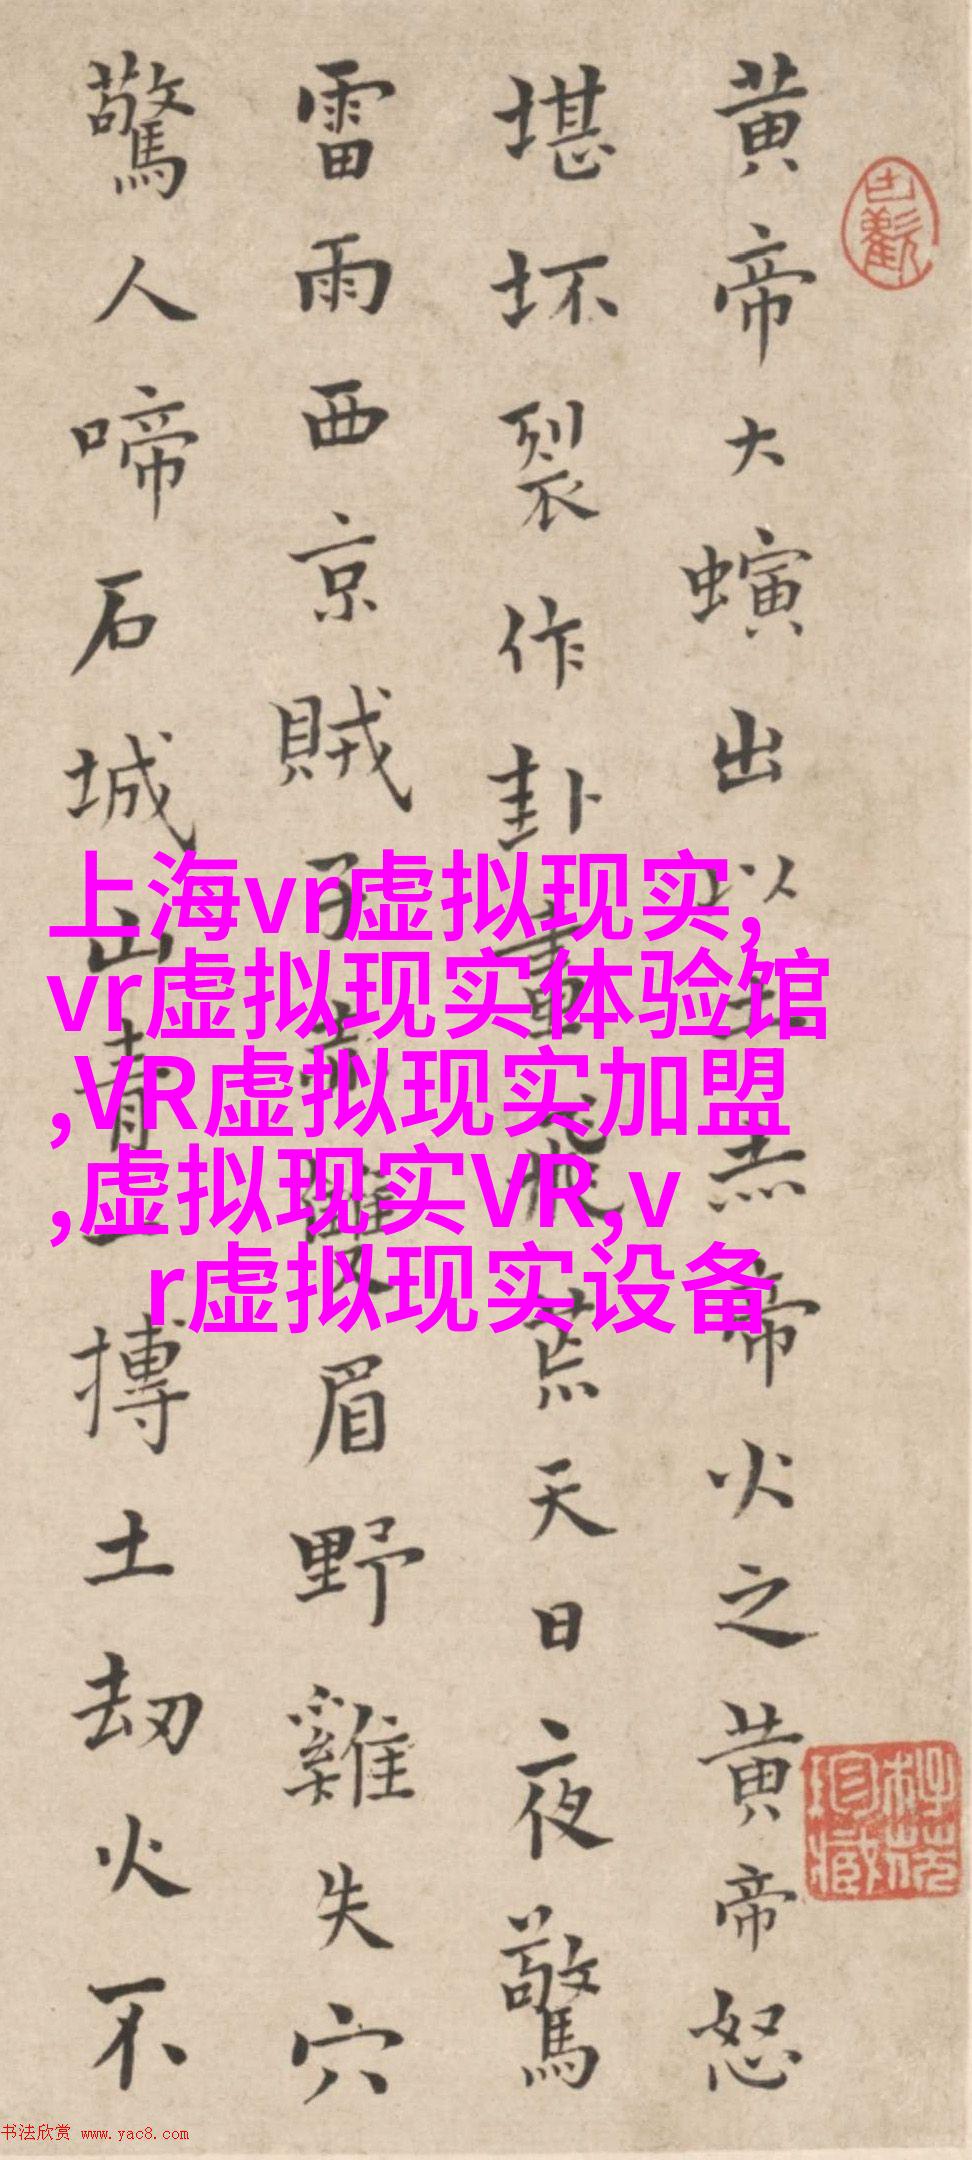 黄帝大螾出以土赤帝火之黄帝怒
堪坏裂作卦重飛荒天日夜驚
雷雨西京賊子赤雙眉野雞失穴
驚人啼石城山青一摶土劫火不
上海vr虚拟现实,
vr虚拟现实体验馆
,VR虚拟现实加盟
,虚拟现实VR,v
r虚拟现实设备
书法欣赏 www.yac8.com